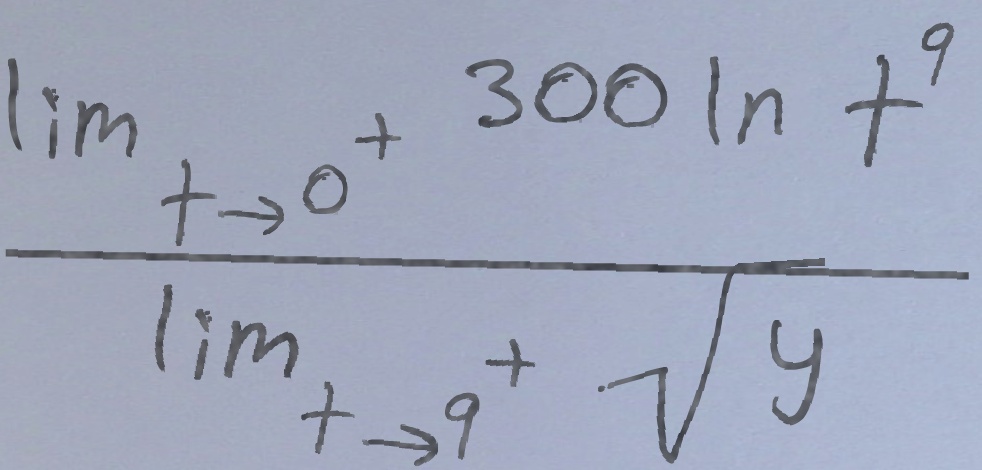 lim t→0⁺ 300 ln t⁹
lim t→9⁺ √y